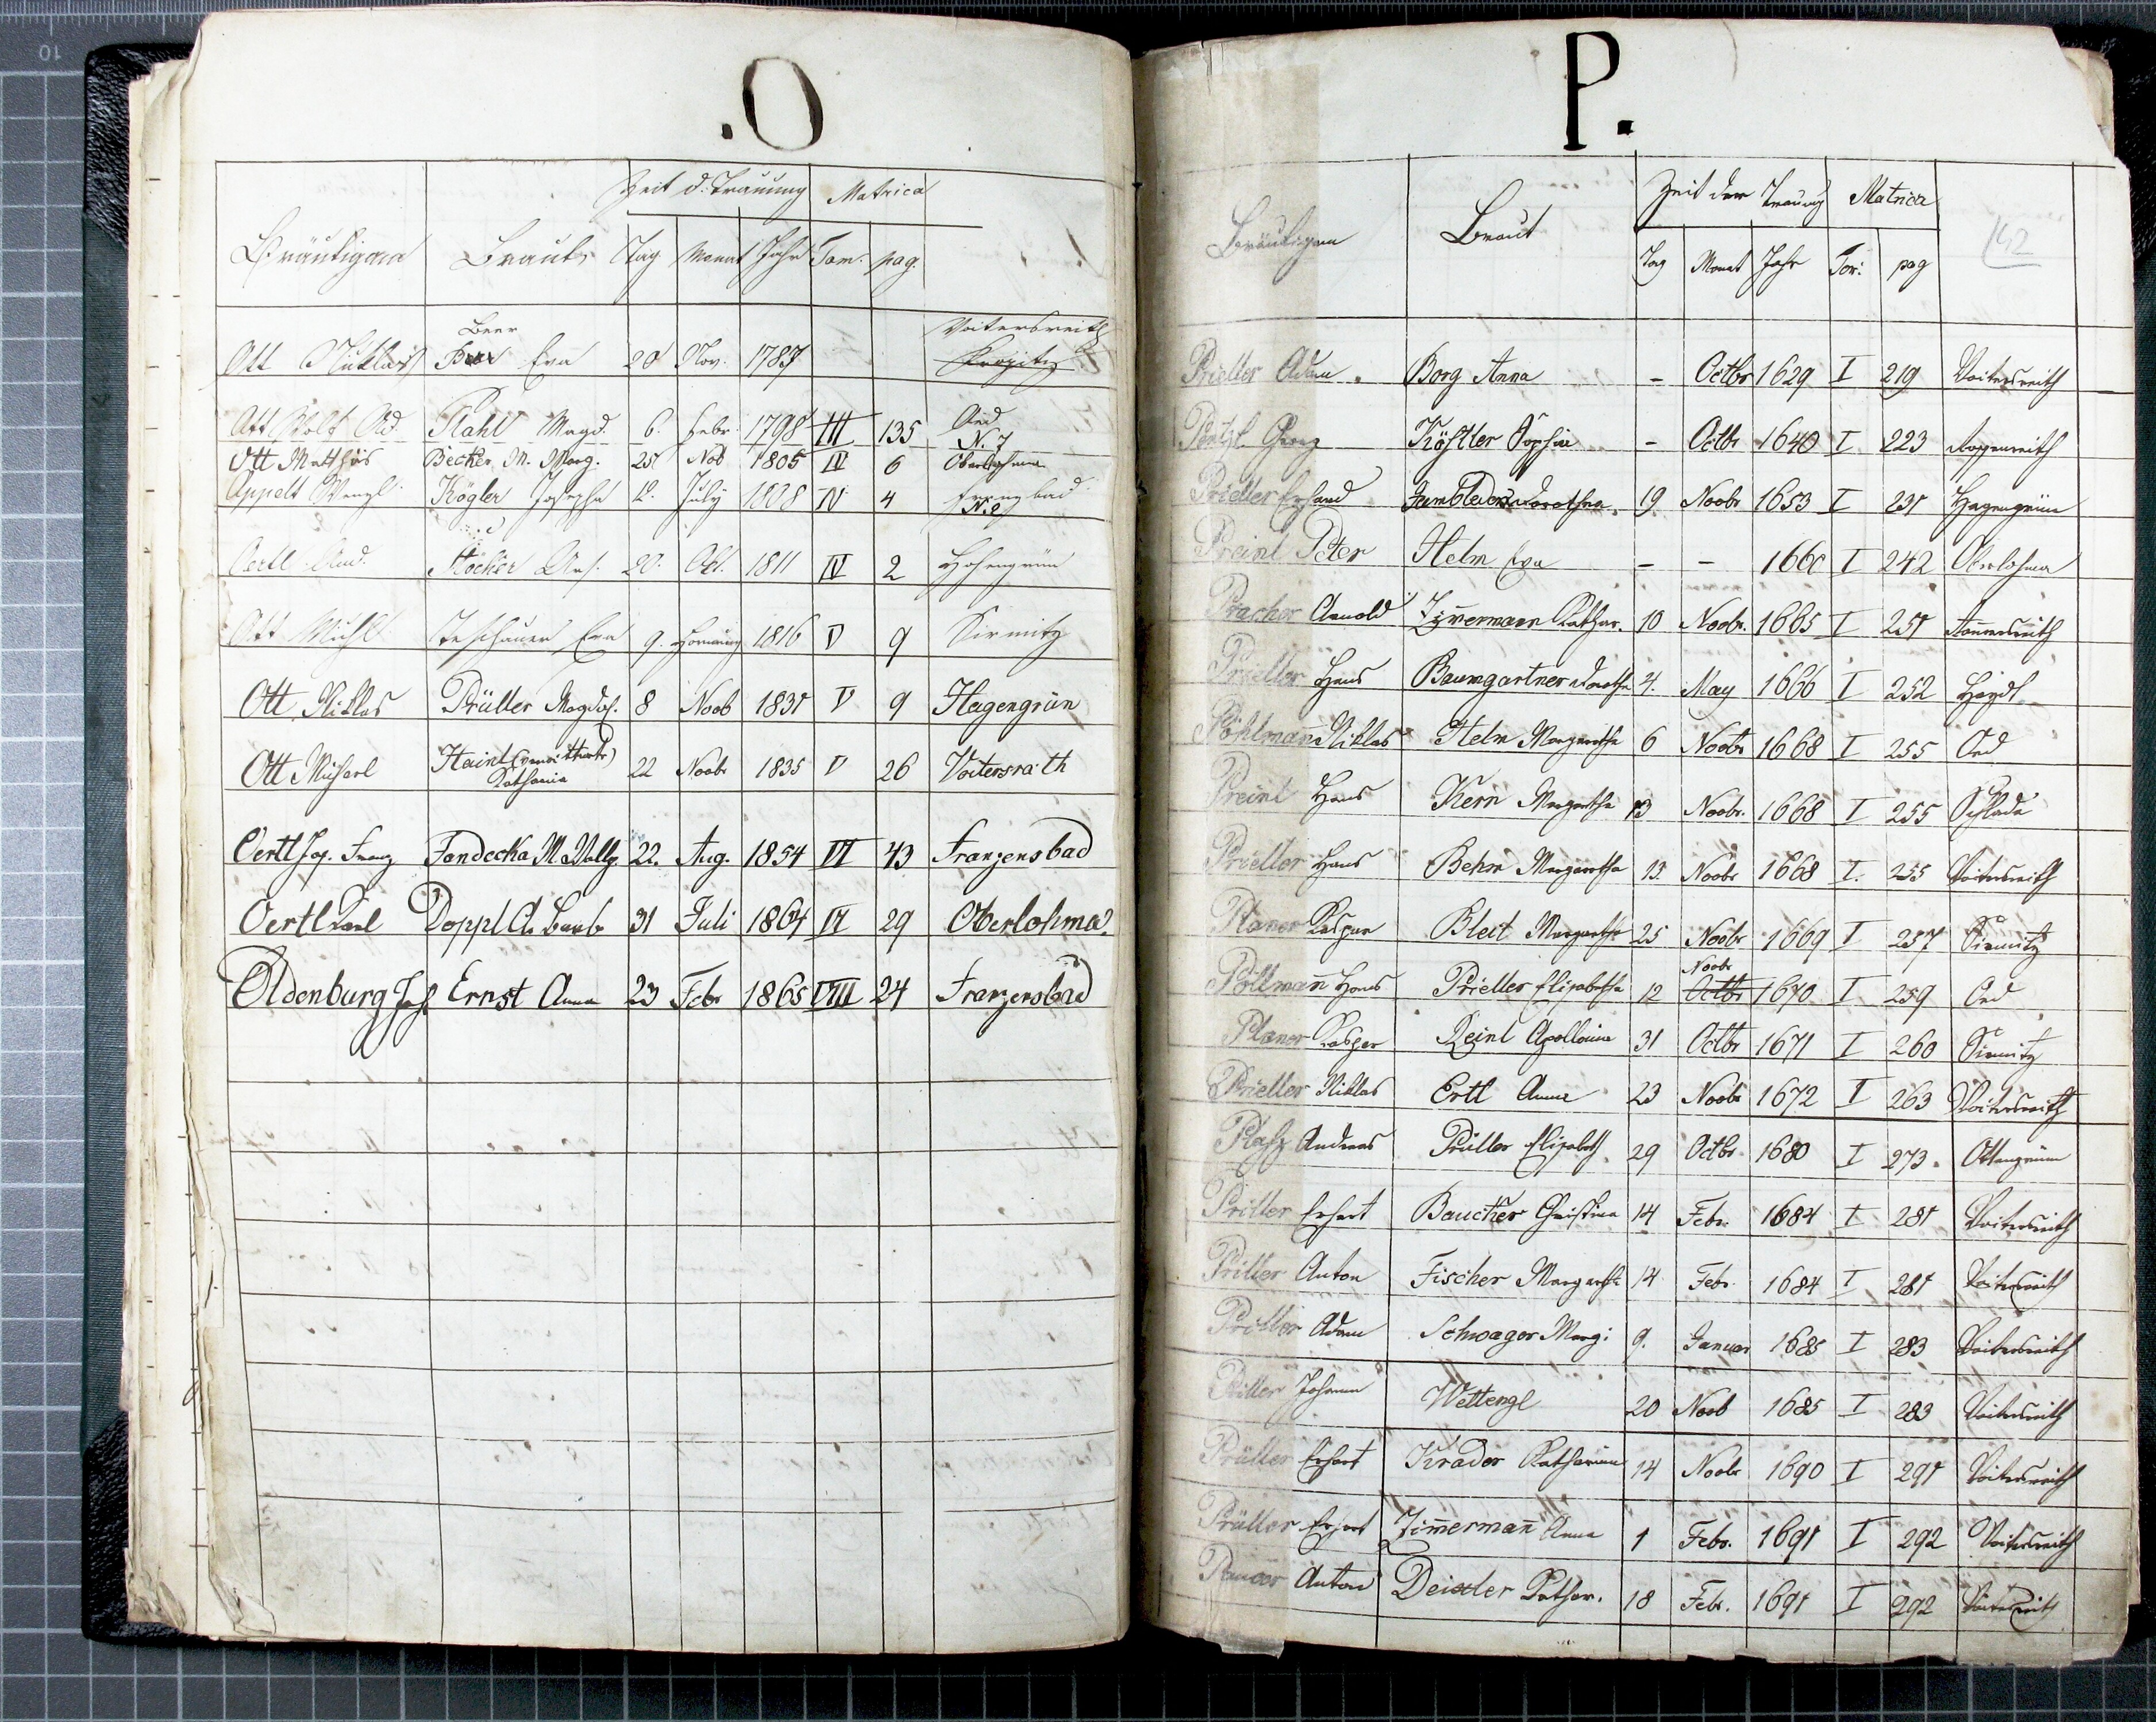 .O
Zeit d. Trauung Matrica
Bräutigam Brauts Tag Monat Jahr Tom. pag.
Beer Voitersreith
Ott Nicklas Eva 20 Nov. 1787 Kropitz
Ott Wolf Ad. Plahl Magd. 6. Febr. 1798 III 135 Oed N. 7
Ott Matthäs Becker M. Marg. 25 Nob 1805 IV 6 Oberlohma
Appelt Wenzl Kögler Josepha 12. July 1808 IV 4 Franzbad N. 2
Oertl And. Stöcker 20. Okt. 1811 IV 2 Hohengrün
Ott Michl Teschauer Eva 9. Hornung 1816 V 9 Sirmitz
Ott Niklas Prüller Magdal. 8 Novb 1831 V 9 Hagengrün
Ott Michael Haint (verwittwete) Katharia 22 Novbr 1835 V 26 Voitersräth
Oertl Jos. Franz Fondecka M. Wallg. 22. Aug. 1854 VI 43 Franzensbad
Oertl Karl Doppl A. Barb. 31 Juli 1864 VI 29 Oberlohma
Oldenburg Joh Ernst Anna 23 Febr 1865 VIII 24 Franzensbad
P.
Zeit der Trauung Matrica
Bräutigam Braut Tag Monat Jahr Tom: pag 142
Prieller Adam Borg Anna - Octbr 1629 I 219 Voitersreith
Georg Köstler Sophia - Octbr 1640 I 223
Prieller Erhard Dorothea 19 Novbr 1653 I 231 Hagengrün
Preinl Peter Helm Eva - - 1660 I 242 Oberlohma
Pracher Arnold Zimermann Kathar. 10 Novbr. 1665 I 251
Prieller Hans Baumgartner Doroth 4. May 1666 I 252 Haydl
Pöhlmann Niklas Helm Margaretha 6 Novbr 1668 I 255 Oed
Preinl Hans Kern Margaretha 13 Novbr. 1668 I 255 Schlada
Prieller Hans Behm Margaretha 13. Novbr 1668 I. 255 Voitersreith
Planer Kaspar Bleit Margaretha 25 Novbr 1669 I 257 Sirmitz
Novbr
Pöllmann Hans Prieller Elisabetha 12 Octbr 1670 I 259 Oed
Planer Kaspar Reinl Apollonia 31 Octbr 1671 I 260 Sirmitz
Prieller Niklas Ertl Anna 23 Novbr 1672 I 263 Voitersreith
Andreas Prüller Elisabeth 29 Octbr. 1680 I 273. Ottengrün
Priller Erhart Baucker Christina 14 Febr. 1684 I 281 Voitersreith
Priller Anton Fischer Margaretha 14 Febr. 1684 I 281 Voitersreith
Priller Adam Schwager Marg: 9. Januar 1685 I 283 Voitersreith
Priller Johann Wettengl 20 Novb 1685 I 283 Voitersreith
Prüller Erhart Krader Katharina 14 Novbr 1690 I 291 Voitersreith
Prüller Erhart Zimermann Anna 1 Febr. 1691 I 292 Voitersreith
Anton Deistler Kathar. 18 Febr. 1691 I 292 Voitersreith